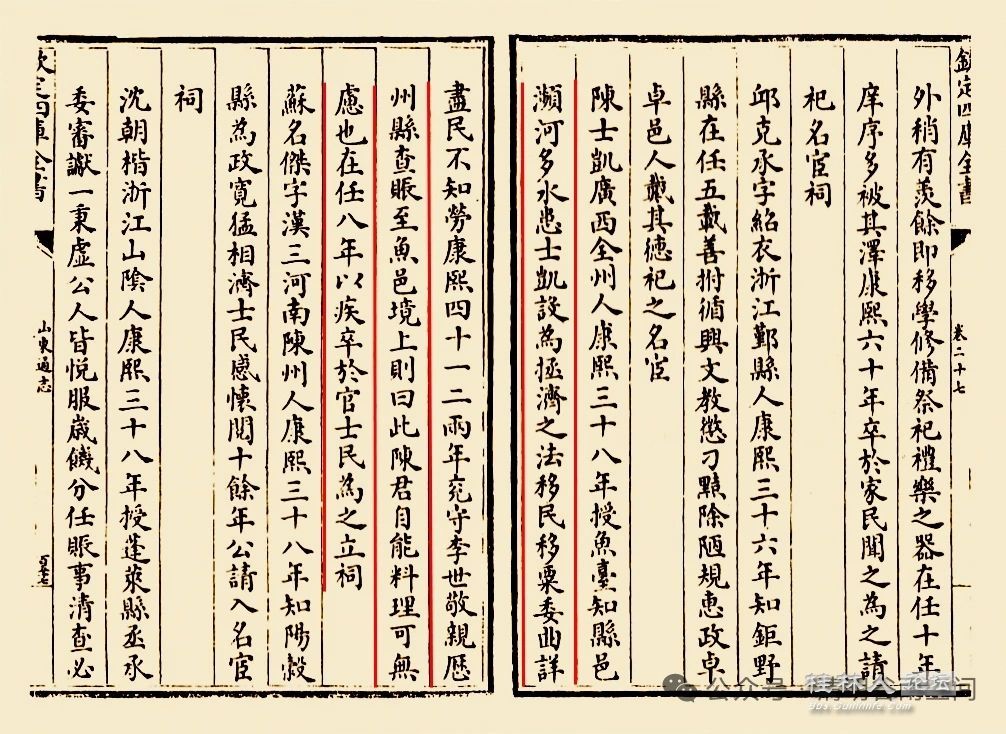 欽定四庫全書
卷二十七
外稍有羨餘即移學修備祭祀禮樂之器在任十年
庠序多被其澤康熙六十年卒於家民聞之為之請
祀名宦祠
邱克承字紹衣浙江鄞縣人康熙三十六年知鉅野
縣在任五載善拊循興文教懲刁黠除陋規惠政卓
卓邑人戴其德祀之名宦
陳士凱廣西全州人康熙三十八年授魚臺知縣邑
瀕河多水患士凱設為拯濟之法移民移粟委曲詳
盡民不知勞康熙四十一二兩年兖守李世敬親歴
州縣查賑至魚邑境上則曰此陳君自能料理可無
慮也在任八年以疾卒於官士民為之立祠
蘇名傑字漢三河南陳州人康熙三十八年知陽榖
縣為政寛猛相濟士民感懷閲十餘年公請入名宦
祠
沈朝楷浙江山陰人康熙三十八年授蓬萊縣丞承
委審讞一秉虛公人皆悦服嵗饑分任賑事清查必
欽定四庫全書
山東通志
公众号
桂林人论坛
bbs.Guilinlife.com